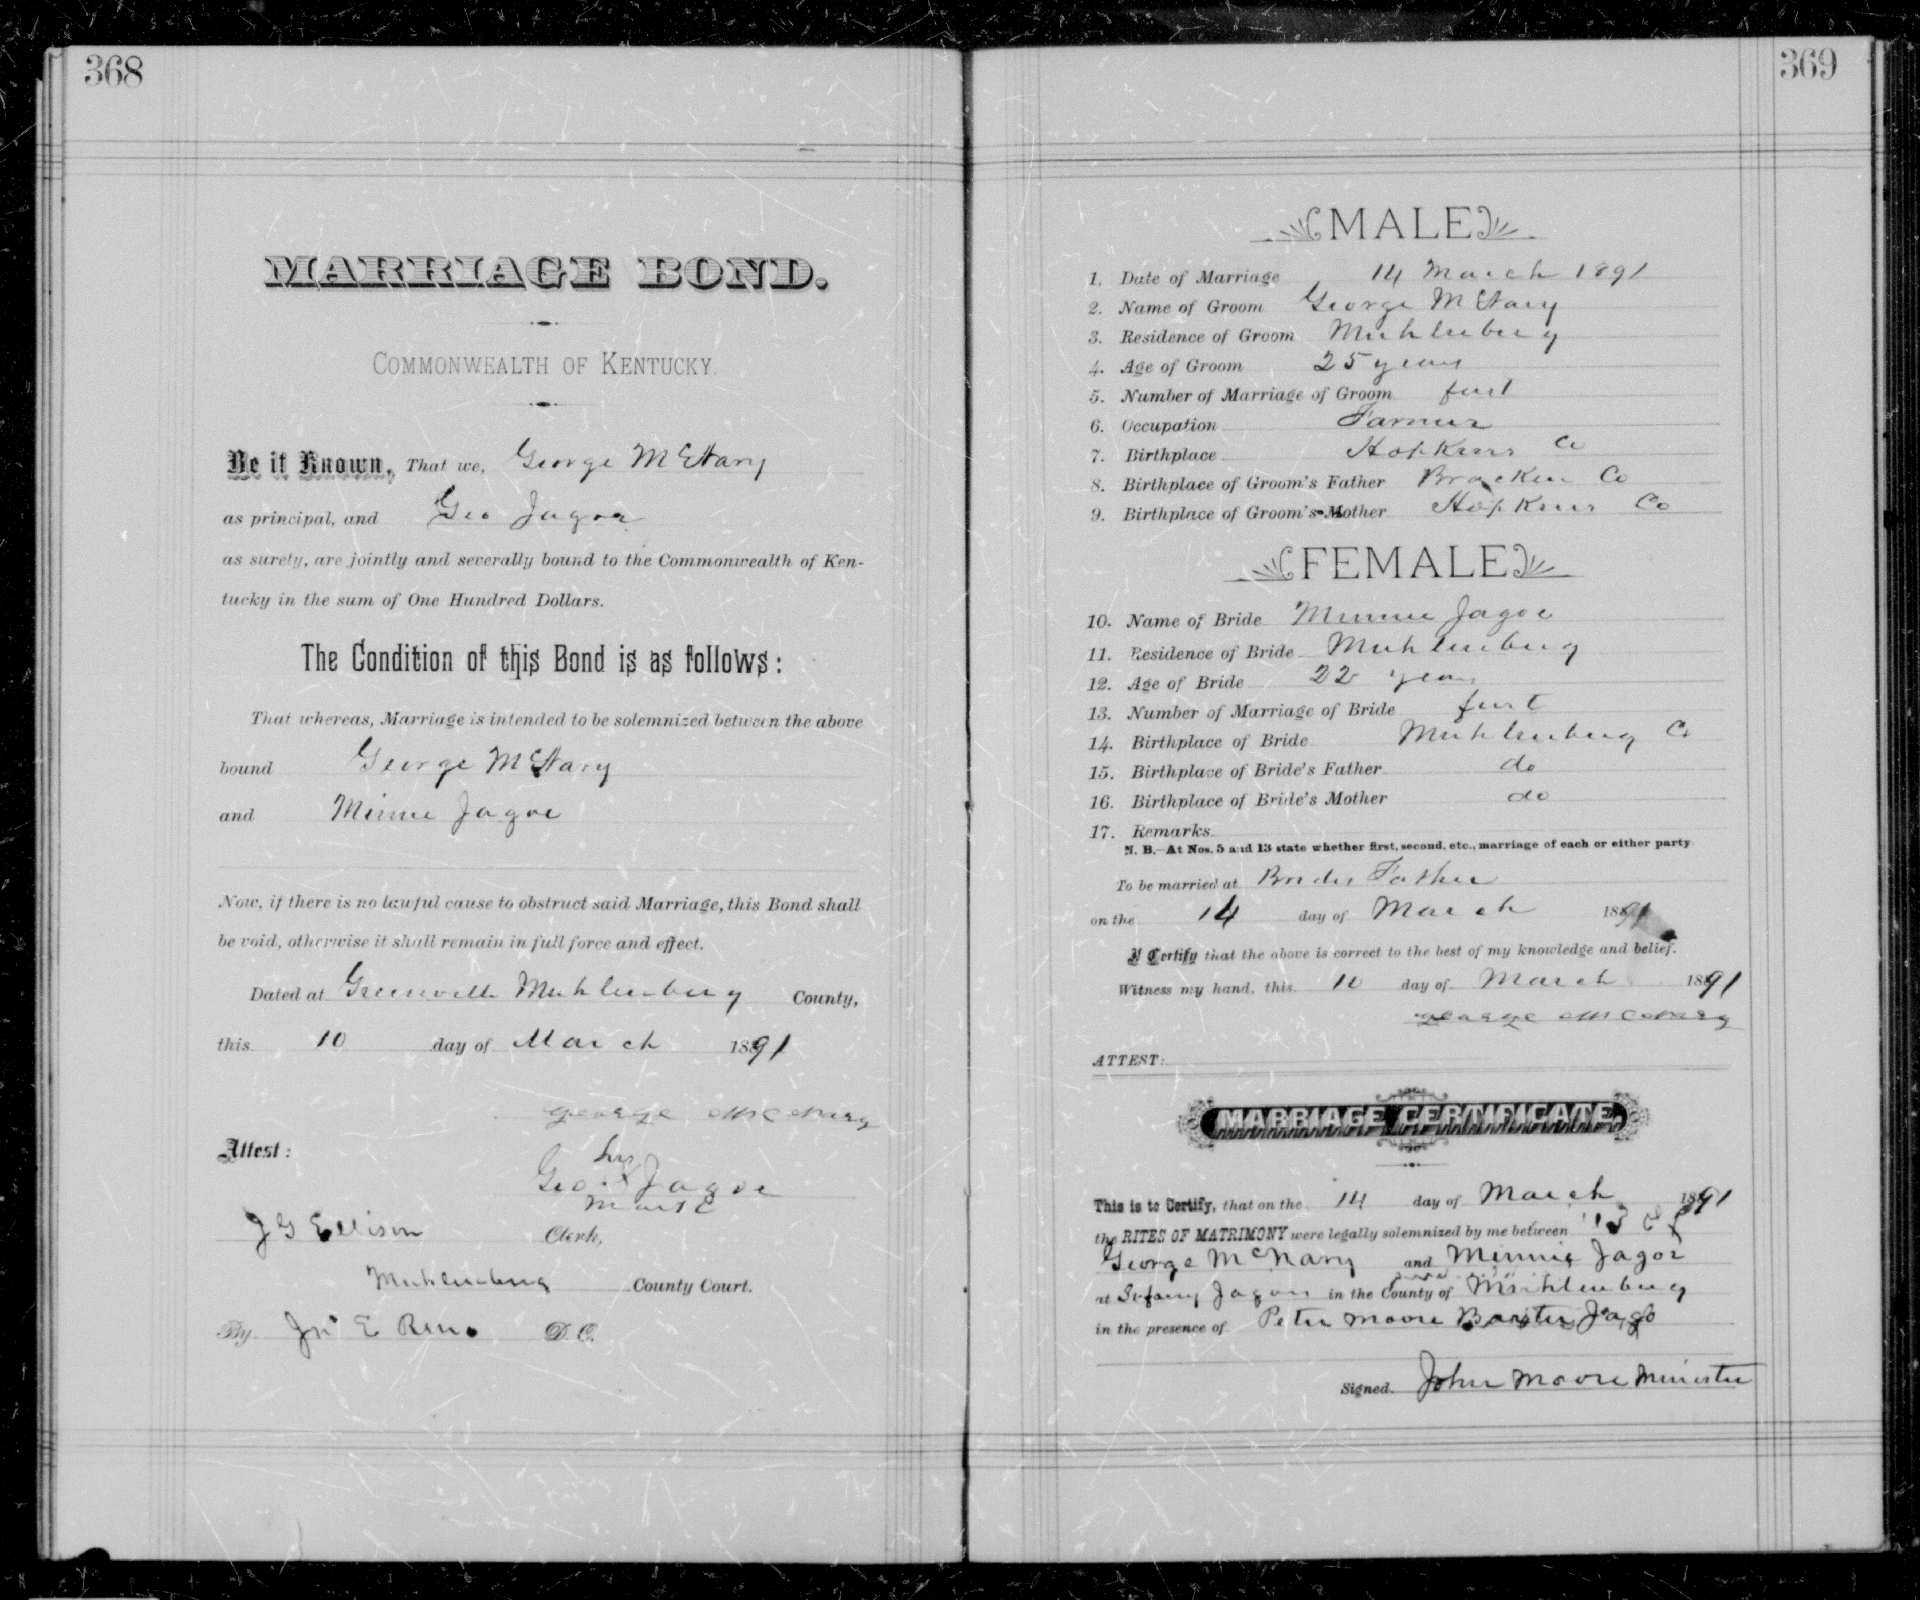 368
MARRIAGE BOND.
COMMONWEALTH OF KENTUCKY.
Be it Known, That we, George McNary
as principal, and Geo Jagoe
as surety, are jointly and severally bound to the Commonwealth of Ken-
tucky in the sum of One Hundred Dollars.
The Condition of this Bond is as follows:
That whereas, Marriage is intended to be solemnized between the above
bound George McNary
and Minnie Jagoe
Now, if there is no lawful cause to obstruct said Marriage, this Bond shall
be void, otherwise it shall remain in full force and effect.
Dated at Greenville Muhlenberg County,
this 10 day of March 1891
George McNary
Attest:
his
Geo x Jagoe
mark
J G Ellison Clerk,
Muhlenberg County Court.
By Jno E Reno D.C.
369
MALE
1. Date of Marriage 14 March 1891
2. Name of Groom George McNary
3. Residence of Groom Muhlenberg
4. Age of Groom 25 years
5. Number of Marriage of Groom first
6. Occupation Farmer
7. Birthplace Hopkins Co
8. Birthplace of Groom's Father Bracken Co
9. Birthplace of Groom's Mother Hopkins Co
FEMALE
10. Name of Bride Minnie Jagoe
11. Residence of Bride Muhlenberg
12. Age of Bride 22 years
13. Number of Marriage of Bride first
14. Birthplace of Bride Muhlenberg Co
15. Birthplace of Bride's Father do
16. Birthplace of Bride's Mother do
17. Remarks
N. B.—At Nos. 5 and 13 state whether first, second, etc., marriage of each or either party
To be married at Brides Father
on the 14 day of March 1891
I Certify that the above is correct to the best of my knowledge and belief.
Witness my hand, this 10 day of March 1891
George McNary
ATTEST:
MARRIAGE CERTIFICATE.
This is to Certify, that on the 14 day of March 1891
the RITES OF MATRIMONY were legally solemnized by me between
George McNary and Minnie Jagoe
at Jagoes in the County of Muhlenberg
in the presence of Peter Moore Baxter Jago
Signed. John Moore Minister